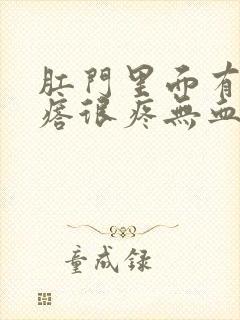 肛門里面有
瘩很疼無血
童成録